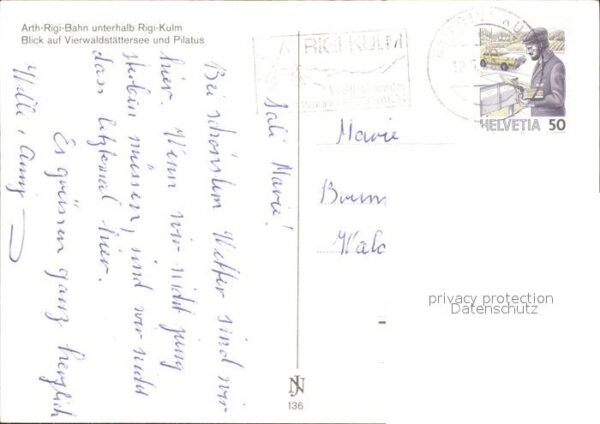 Arth-Rigi-Bahn unterhalb Rigi-Kulm
Blick auf Vierwaldstättersee und Pilatus
Sali Marie!
Bei schönstem Wetter sind wir
hier. Wenn wir nicht jung
sterben müssen, sind wir nicht
das letztemal hier.
Es grüssen ganz herzlich
Willi + Anny
RIGI KULM
HELVETIA 50
Marie
privacy protection
Datenschutz
NJ
136